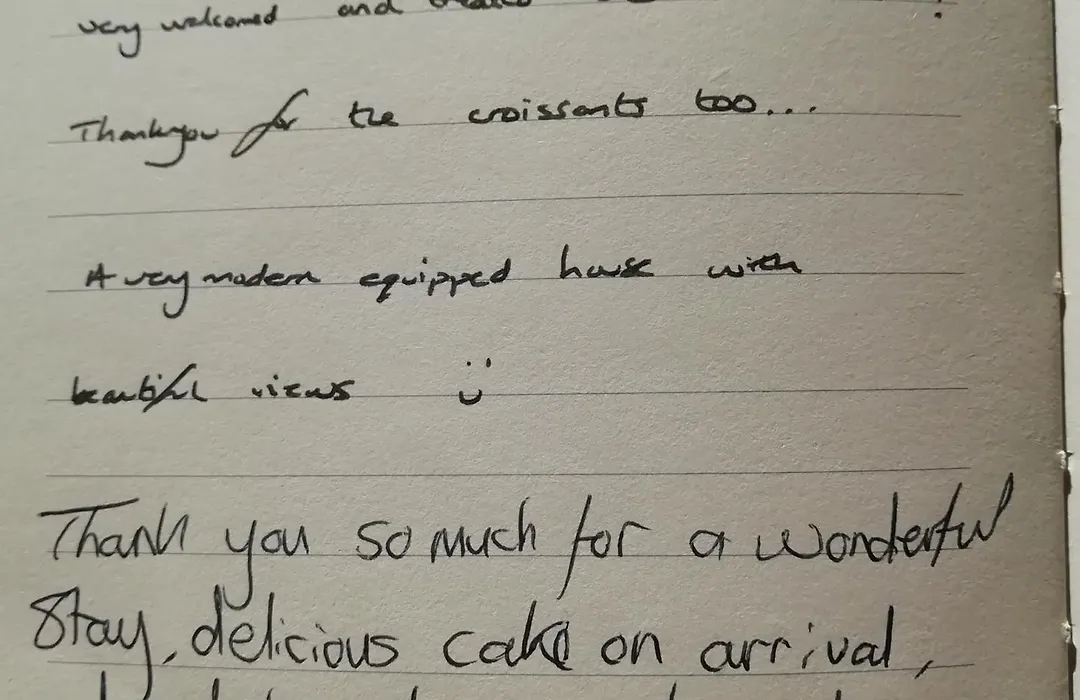 very welcomed and
Thankyou for the croissants too...
A very modern equipped house with
beautiful views :)
Thank you so much for a wonderful
Stay, delicious cake on arrival,